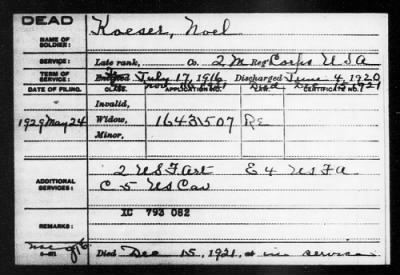 DEAD
NAME OF SOLDIER: Koeser, Noel
SERVICE: Late rank, Co. 2 M Reg Corps U S A
TERM OF SERVICE: Enlisted July 17, 1916 Discharged June 4, 1920
Nov 1921 Died Dec 15, 1921
DATE OF FILING. CLASS. APPLICATION NO. LAW.
Invalid,
1929 May 24 Widow, 1643507 Re
Minor,
ADDITIONAL SERVICES: 2 U S F. Art E 4 U S F A
C 5 U S Cav
XC 793 082
REMARKS:
Died Dec 15, 1921, at in service